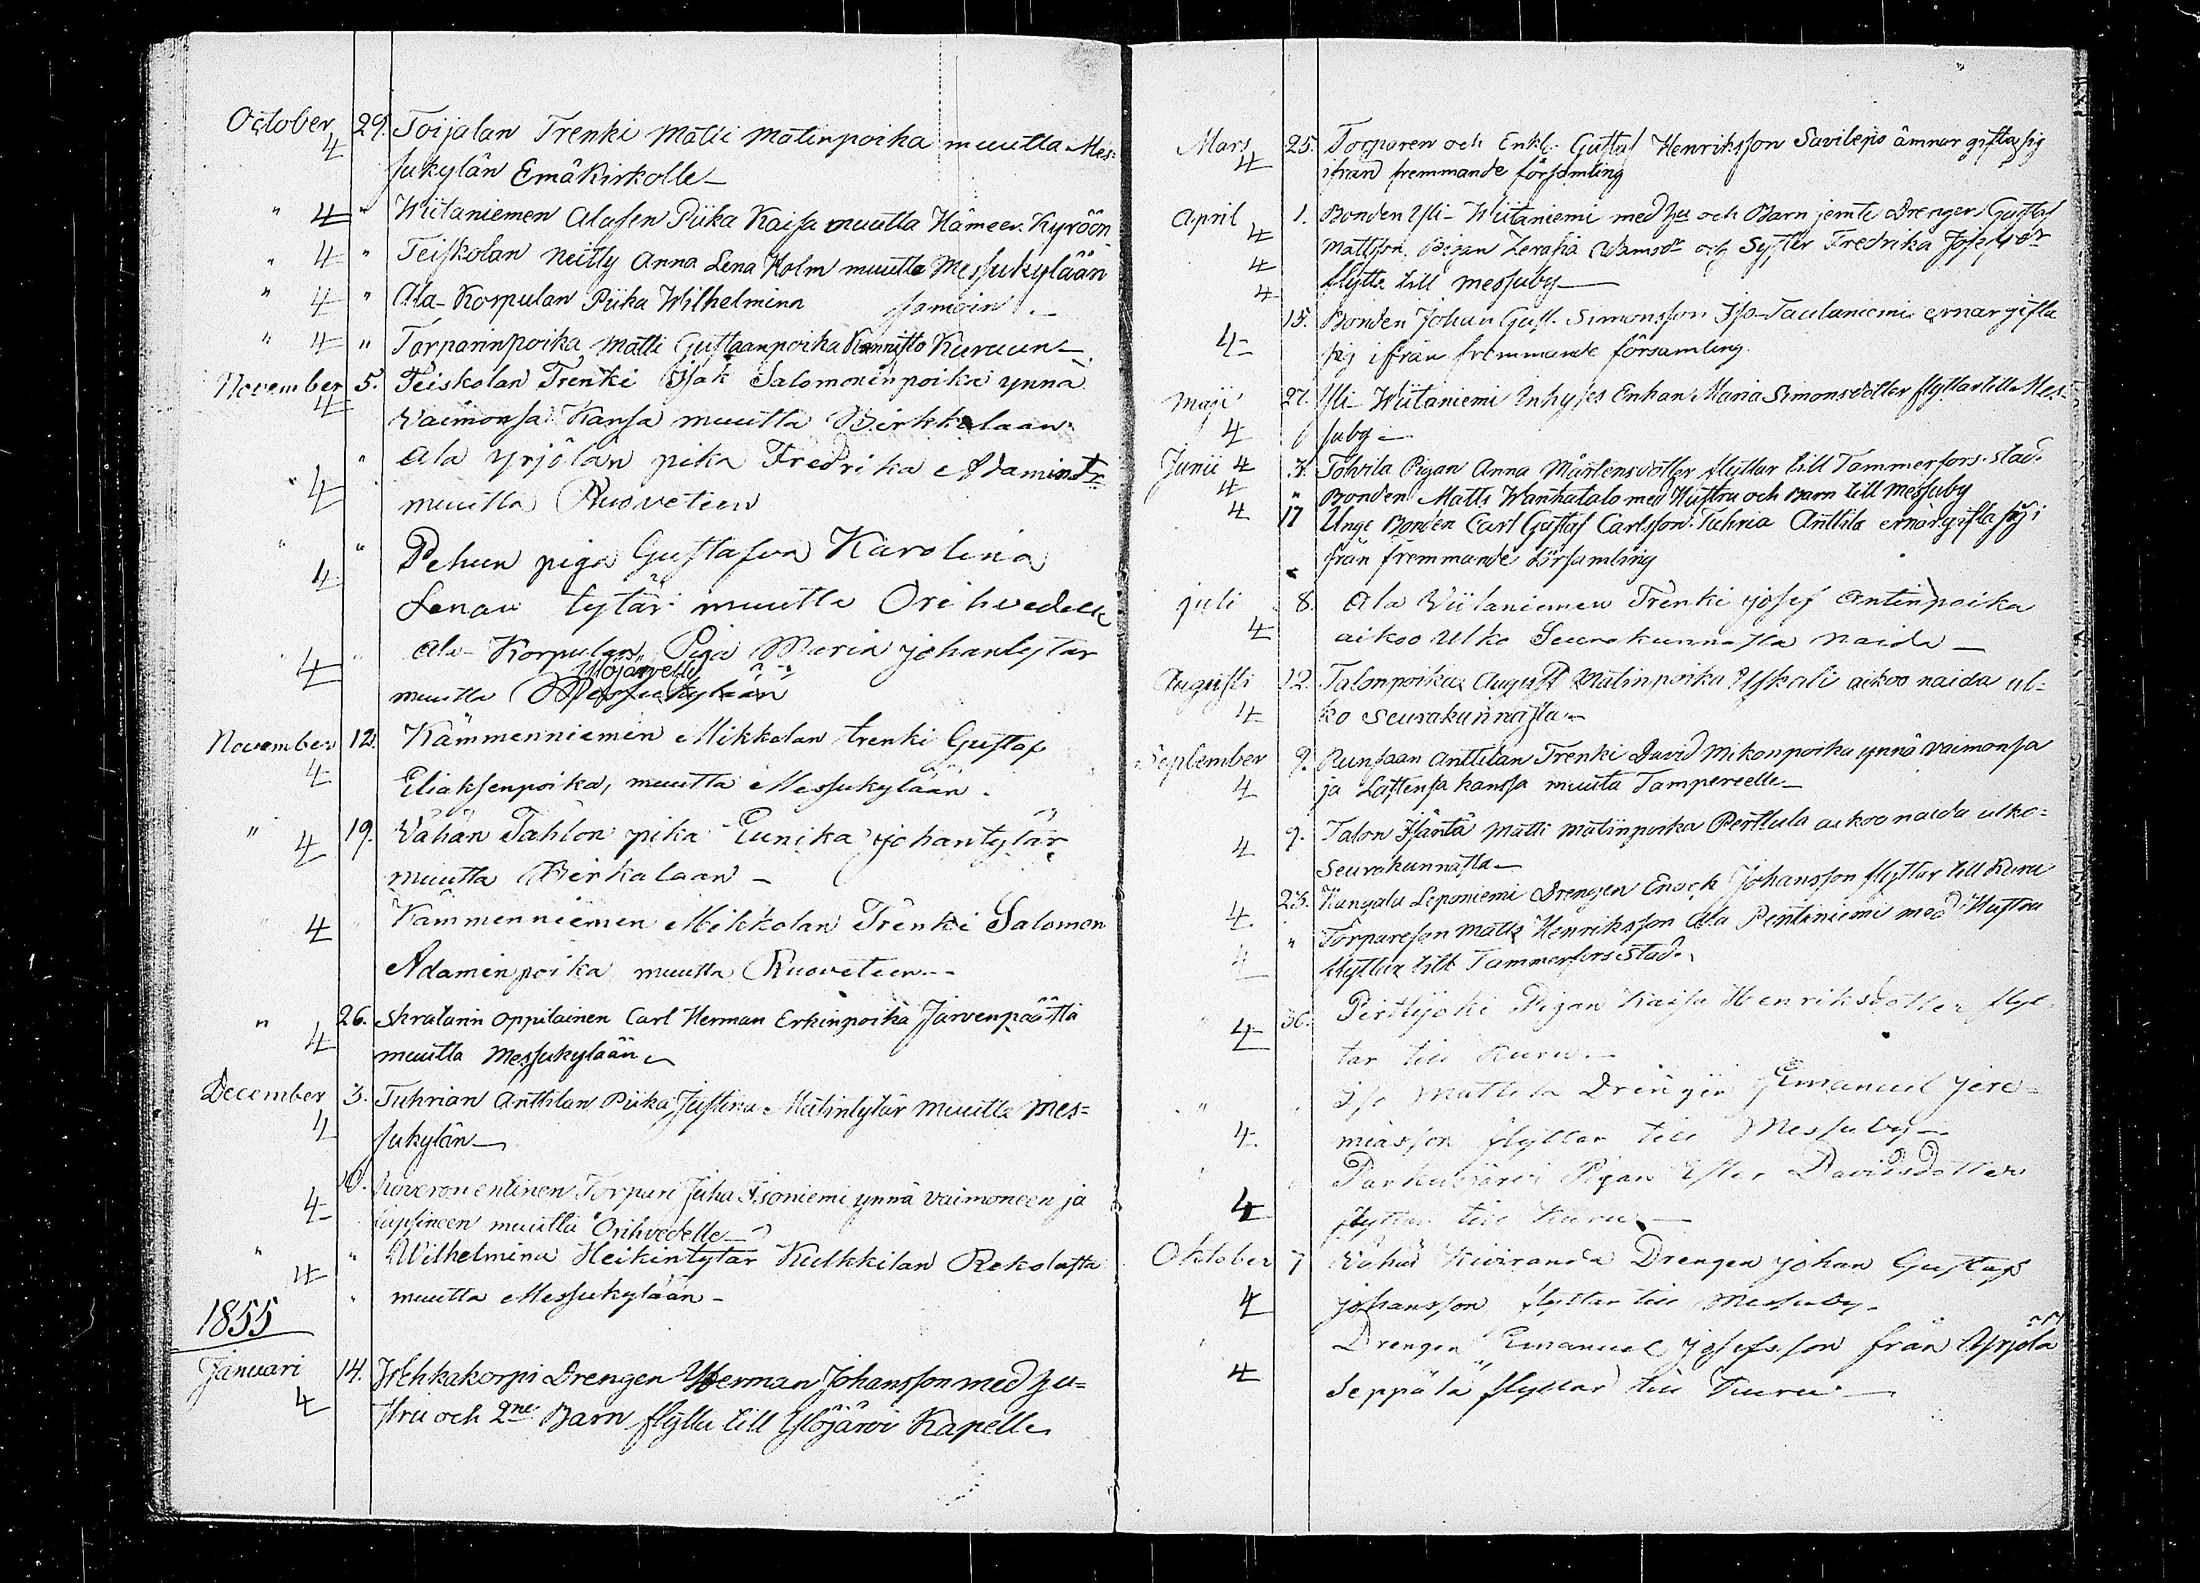 October 29. Toijalan Trenki Matti Matinpoika muutta Mes-
4 sukylän Emäkirkolle
" 4 " Wiitaniemen Alasen Piika Kaisa muutta Hämeen Kyröön
" 4 " Teiskolan neitty Anna Lena Holm muutta Messukylään
" 4 " Ala-Korpulan Piika Wilhelmina samoin
" 4 " Torparinpoika Matti Gustaanpoika Kannisto Kuruun
November 5. Teiskolan Trenki Isak Salomoninpoika ynnä
4 Vaimonsa Kansa muutta Birkkalaan
" Ala Yrjölän pika Fredrika Adamindr
4 muutta Ruoveteen
" " Pehun piga Gustafva Karolina
4 Lenan tytär muutta Orihvedelle
4 Ala-Korpulan Piga Maria Johantytar
Ylöjärvelle
muutta Messukylään
November 12. Kämmenniemin Mikkolan trenki Gustaf
4 Eliaksenpoika, muutta Messukylään.
" 4 19. Vähän Tahlon pika Eunika Johantytär
muutta Birkalaan
4 Kämmenniemen Mikkolan Trenki Salomon
Adaminpoika muutta Ruoveteen
" 26. Skratarin oppilainen Carl Herman Erkinpoika Järvenpäästä
4 muutta Messukylään
December 3. Tuhrian Anttilan Piika Justina Matintytär muutta Mes=
4 sukylän
10. Koveron entinen Torpari Juha Isoniemi ynnä vaimoneen ja
4 lapsineen muutta Orihvedelle
" " Wilhelmina Heikintytär Kulkkilan Rekolasta
4 muutta Messukylään
1855
Januari 14. Hehkakorpi Drengen Herman Johansson med hu=
4 stru och 2ne Barn flytta till Ylöjärvi Kapell
Mars 25. Torparen och Enkl. Gustaf Henriksson Savilepo ämnar gifta sig
4 ifrån fremmande försambling
April 1. Bonden Yli-Wiitaniemi med hu och Barn jemte Drengen Gustaf
4 Mattsson, Pigan Zerafia Adamsdr och Syster Fredrika Josepsdr
4 flytta till Messuby
4
15. Bonden Johan Gust. Simonsson Iso-Taulaniemi ernar gifta
4 sig ifrån fremmande församling.
Maji 27. Yli-Wiitaniemi Inhyses Enkan Maria Simonsdotter flyttar till Mes-
4 suby
Junii 4 3. Tohvila Pigan Anna Mårtensdotter flyttar till Tammerfors stad.
4 " Bonden Matts Wanhatalo med Hustru och Barn till Messuby
4 17 Unge Bonden Carl Gustaf Carlsson Tuhria Anttila ernar gifta sig i
från fremmande församling
Juli 8. Ala Viitaniemen Trenki Josef Antinpoika
4 aikoo Ulko Seurakunnasta naida
Augusti 12. Talonpoika August Matinpoika Uskali aikoo naida ul-
4 ko seurakunnasta
September 9. Runsaan Anttilan Trenki David Mikonpoika ynnä vaimonsa
4 ja Lastensa kanssa muuta Tampereelle
9. Talon Isäntä Matti Matinpoika Perttula aikoo naida ulko=
4 Seurakunnasta
23. Kangala Leponiemi Drengen Enock Johansson flyttar till Kuru
4 " Torpareson Matts Henriksson Ala Pentiniemi med Hustru
4 flyttar till Tammerfors Stad.
" 30. Perttijoki Pigan Kaisa Henriksdotter flyt-
4 tar till Kuru.
" Iso Mattila Drengen Emanuel Jere-
4. miasson flyttar till Messuby
Parkujärvi Pigan Ester Davidsdotter
4 flyttar till Kuru
Oktober 7 Vähä Kiviranda Drengen Johan Gustaf
4 Johansson flyttar till Messuby.
Drengen Emanuel Josefsson från Yrjölä
4 Seppälä flyttar till Kuru.